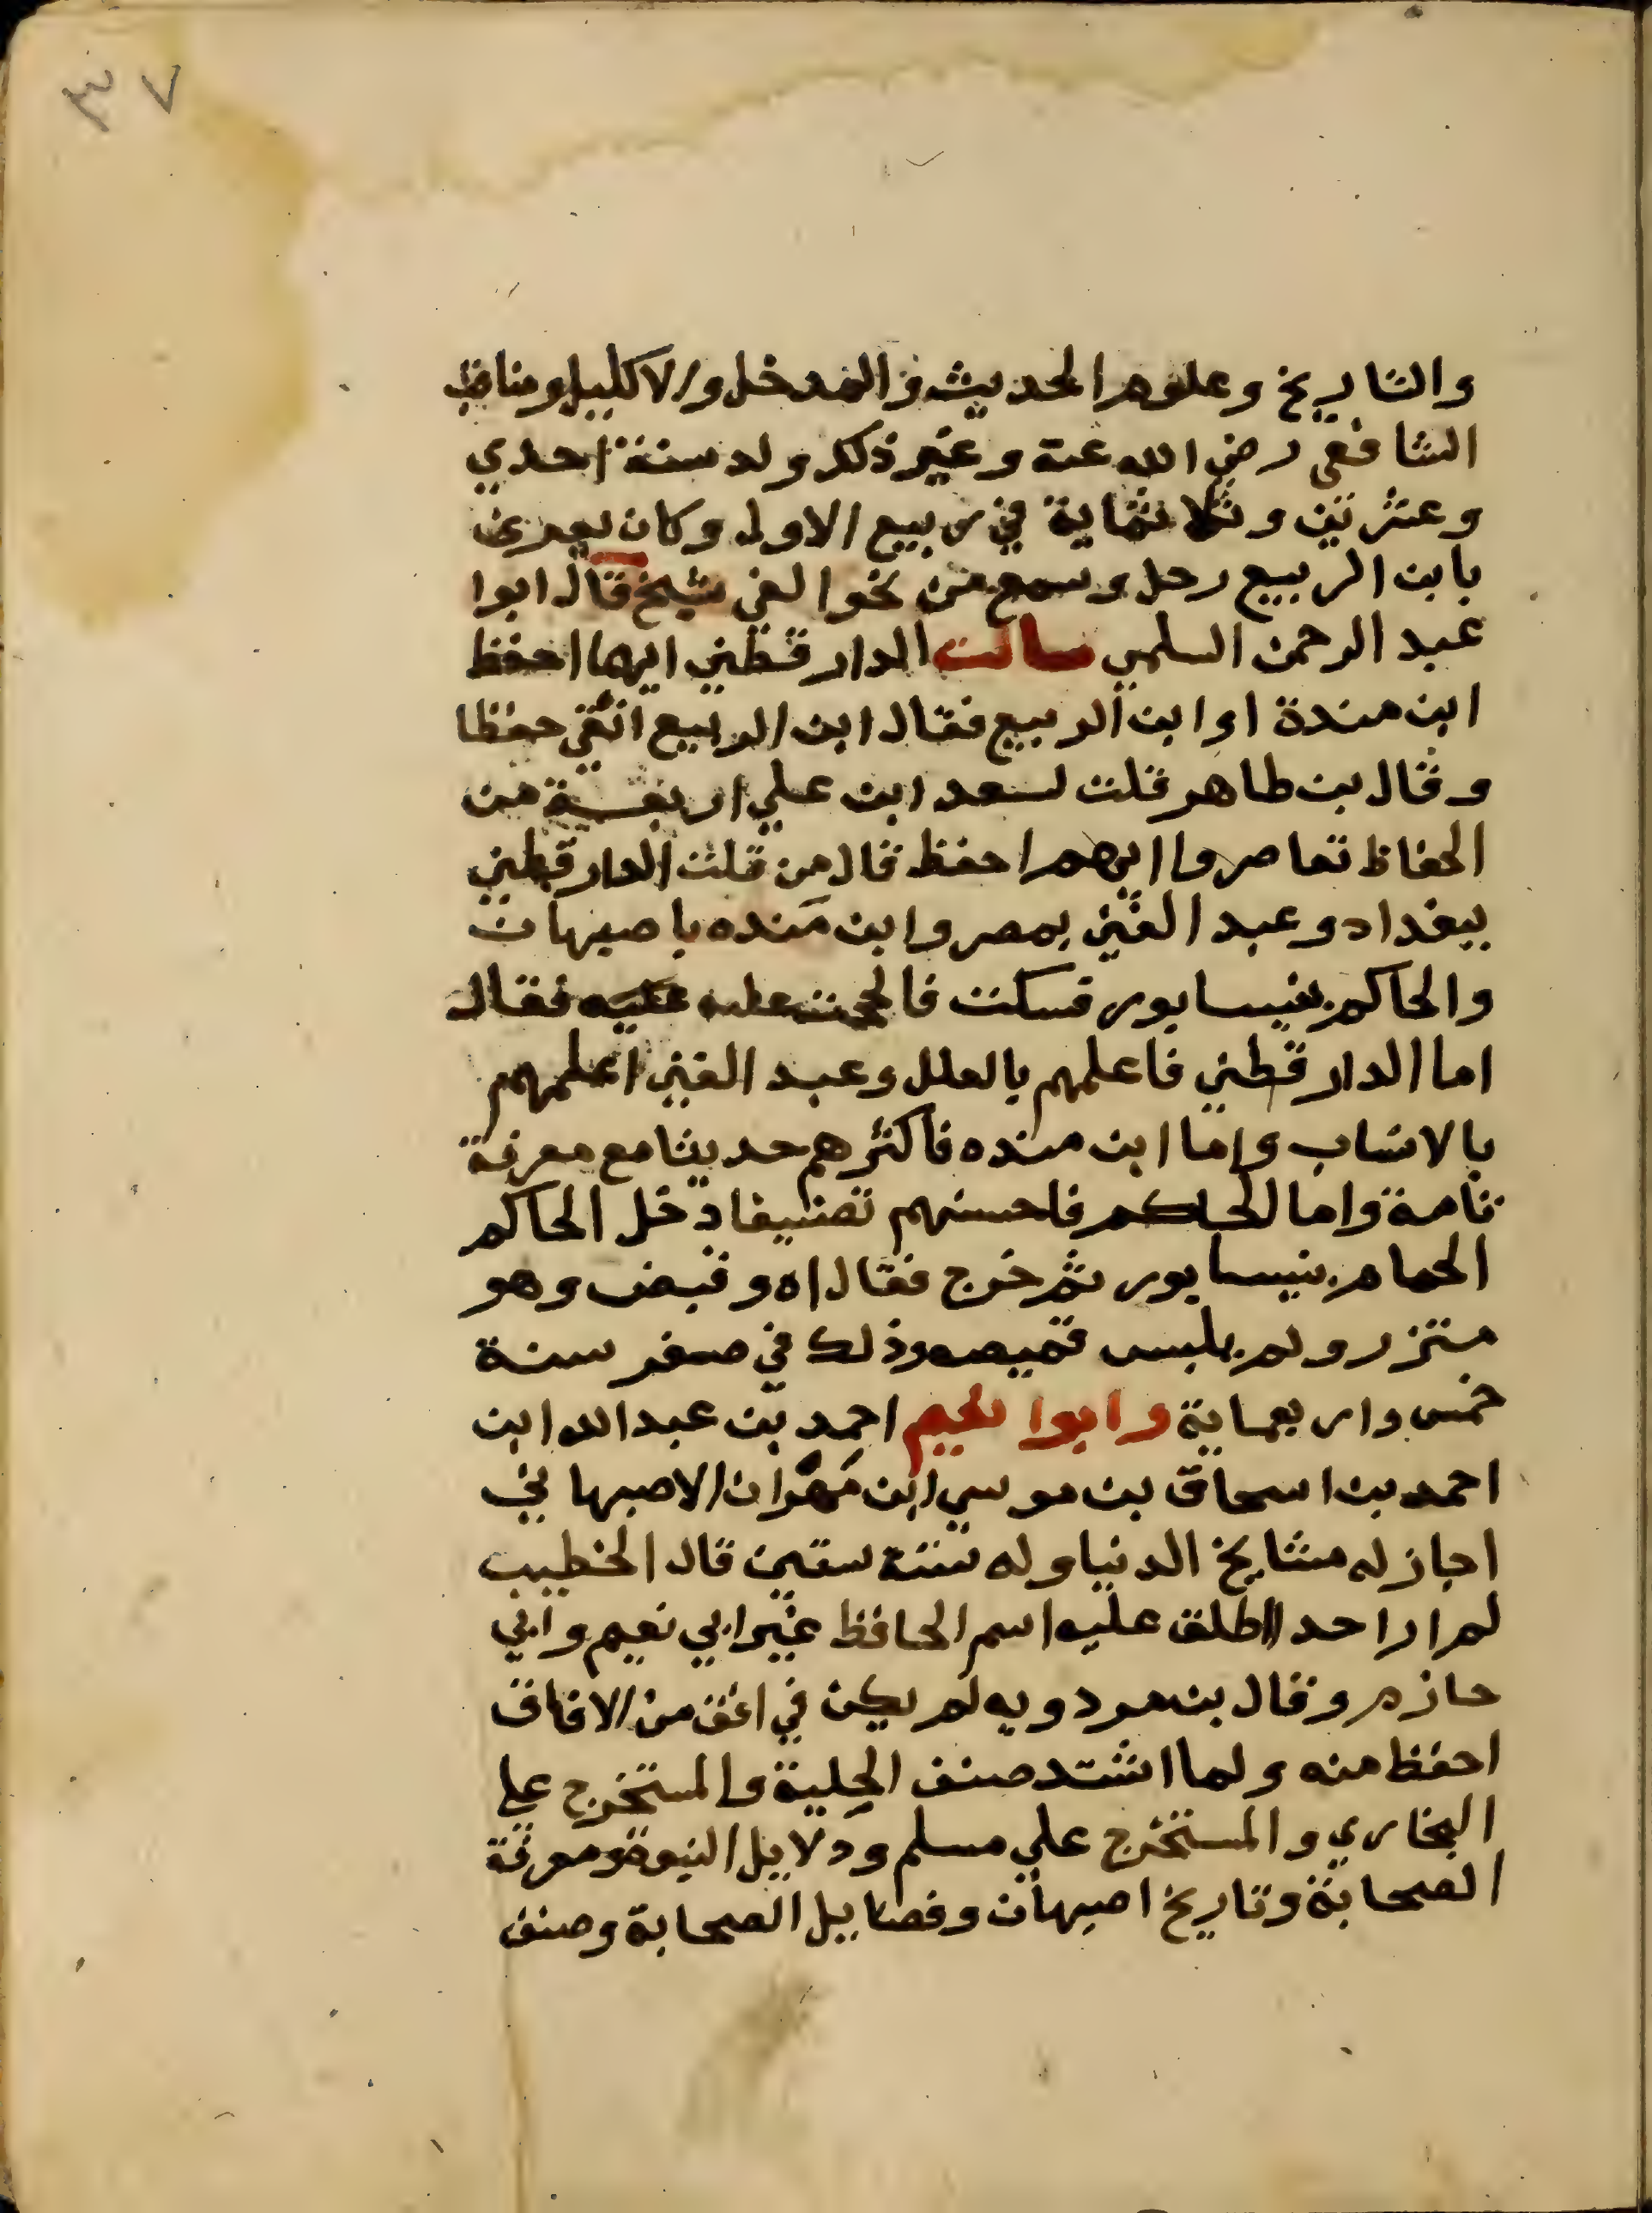 ٣٧
والتاريخ وعلوم الحديث والمدخل والاكليل ومناقب
الشافعي رضي الله عنه وغير ذلك ولد سنة احدي
وعشرين وثلاثماية في ربيع الاول وكان يعرف
بابن الربيع رحل وسمع من نحو الفي شيخ قال ابوا
عبد الرحمن السلمي سالت الدارقطني ايهما احفظ
ابن مندة او ابن الربيع فقال ابن الربيع اتقي حفظا
وقال بن طاهر قلت لسعد ابن علي اربعة من
الحفاظ تعاصروا ايهم احفظ قال من قلت الدارقطني
ببغداد وعبد الغني بمصر وابن منده باصبهان
والحاكم بنيسابور فسكت فالححت عليه فقال
اما الدارقطني فاعلمهم بالعلل وعبد الغني اعلمهم
بالانساب واما ابن منده فاكثرهم حديثا مع معرفة
تامة واما الحاكم فاحسنهم تصنيفا دخل الحاكم
الحمام بنيسابور ثم خرج فقال اه وقبض وهو
متزر ولم يلبس قميصه وذلك في صفر سنة
خمس واربعماية وابوا نعيم احمد بن عبد الله ابن
احمد بن اسحاق بن موسي ابن مهران الاصبهاني
اجاز له مشايخ الدنيا وله ستة سنين قال الخطيب
لم ار احد اطلق عليه اسم الحافظ غير ابي نعيم وابي
حازم وقال بن مردويه لم يكن في افق من الافاق
احفظ منه ولما اشتد صنف الحلية والمستخرج علي
البخاري والمستخرج علي مسلم ودلايل النبوة ومعرفة
الصحابة وتاريخ اصبهان وفضايل الصحابة وصنف